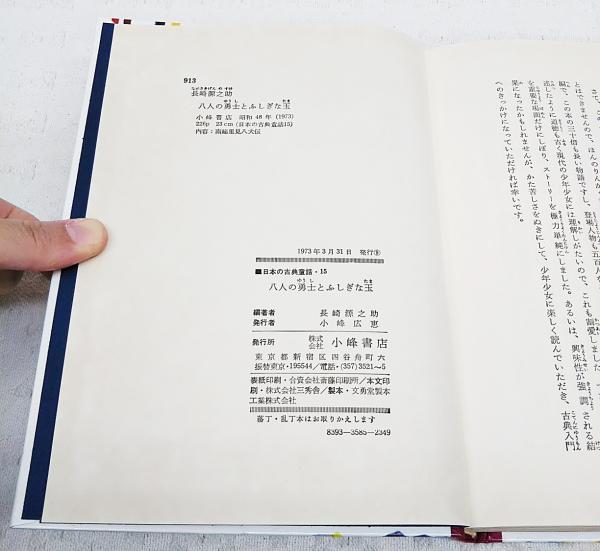 913
長崎源之助
八人の勇士とふしぎな玉
小峰書店 昭和48年(1973)
226p 23cm(日本の古典童話15)
内容:南総里見八犬伝
1973年3月31日 発行®
■日本の古典童話・15
八人の勇士とふしぎな玉
編著者 長崎源之助
発行者 小峰広恵
発行所 株式会社 小峰書店
東京都新宿区四谷舟町六
振替東京・195544/電話・(357)3521~5
表紙印刷・合資会社斎藤印刷所/本文印
刷・株式会社三秀舎/製本・文勇堂製本
工業株式会社
落丁・乱丁本はお取りかえします
8393—3585—2349
とはできませんので、ほんのりんか
編で、この本の三十倍も長い物語ですし、登場人物も五百人な
述したように道徳も古く現代の少年少女には理解しがたいので、これも割愛しました。
を重要な場面だけにしぼり、ストーリーを極力単純にしました。あるいは、興味性が強調される結
果になったかもしれませんが、かた苦しさをぬきにして、少年少女に楽しく読んでいただき、古典入門
へのきっかけになっていただければ幸いです。